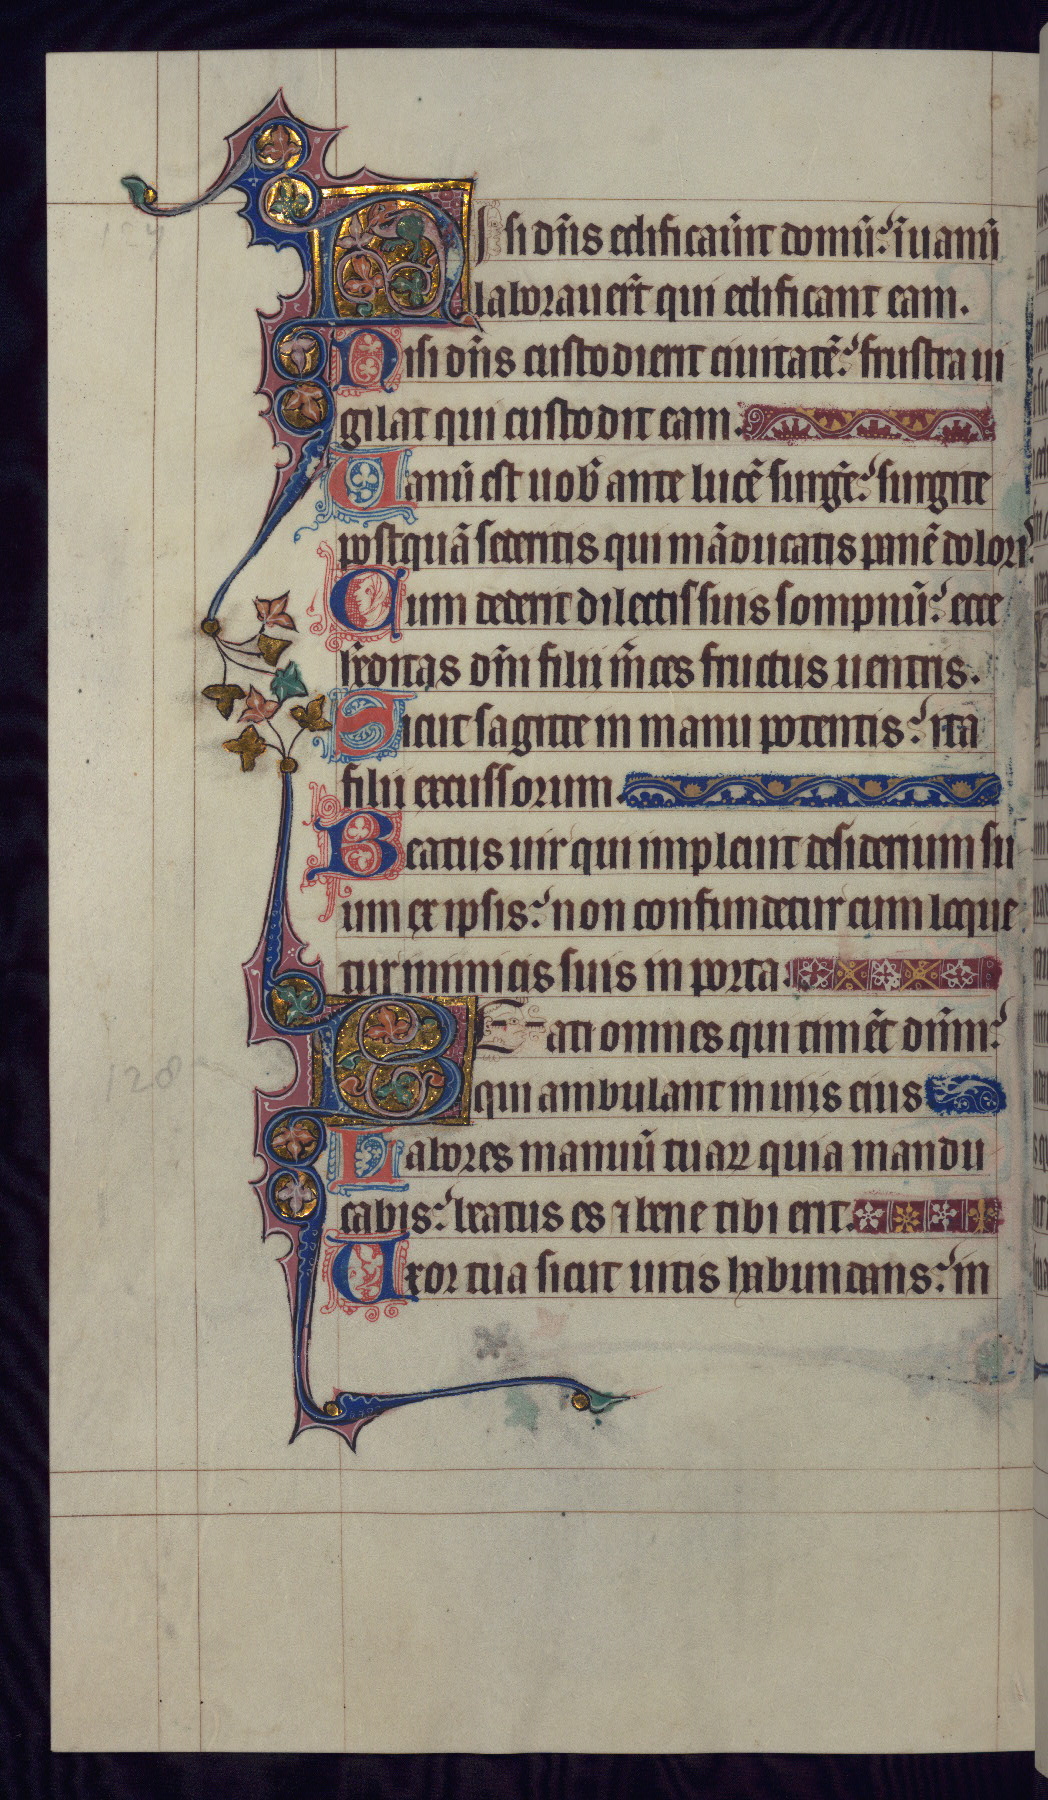 Nisi dn̄s edificaūit domū: ī uanū
laborauer̄t qui edificant eam.
Nisi dn̄s custodierit ciuitatē: frustra ui
gilat qui custodit eam.
Uanū est uob̄ ante lucē surgē: surgite
postquā sederitis qui māducatis panē dolori
Cum dederit dilectis suis sompnū: ecce
hr̄ditas dn̄i filii m̄ces fructus uentris.
Sicut sagitte in manu potentis: ita
filii excussorum.
Beatus uir qui impleuit desiderium su
um ex ipsis: non confundetur cum loque
tur inimicis suis in porta.
Beati omnes qui timēt dn̄m:
qui ambulant in uiis eius
Labores manuū tuaꝝ quia mandu
cabis: beatus es ⁊ bene tibi erit.
Uxor tua sicut uitis habundans: in
128